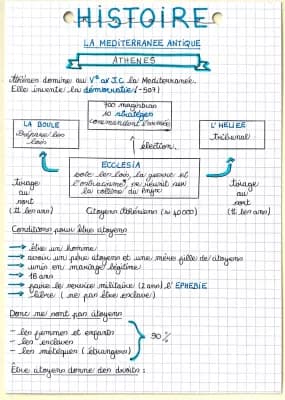 HISTOIRE
LA MEDITERRANEE ANTIQUE
ATHENES
Athènes domine au Ve av J.C la Mediterranée.
Elle invente la démocratie (-507)
700 magistrats
10 stratèges
commandent l'armée
LA BOULE
Prépare les
lois
L'HELIEE
Tribunal
élection.
ECCLESIA
vote les lois, la guerre et
l'ostracisme, se réunit sur
la colline du Pnyx
Tirage
au
sort
(1 an)
Tirage
au
sort
(1 an)
Citoyens Athéniens (≈ 40000)
Conditions pour être citoyens
→ être un homme
→ avoir un père citoyen et une mère fille de citoyens
→ unis en mariage légitime
→ 18 ans
→ faire le service militaire (2 ans) l'EPHEBIE
→ libre (ne pas être esclave)
Donc ne sont pas citoyens
- les femmes et enfants
- les esclaves
- les métèques (étrangers)
90 %
Être citoyens donne des droits :